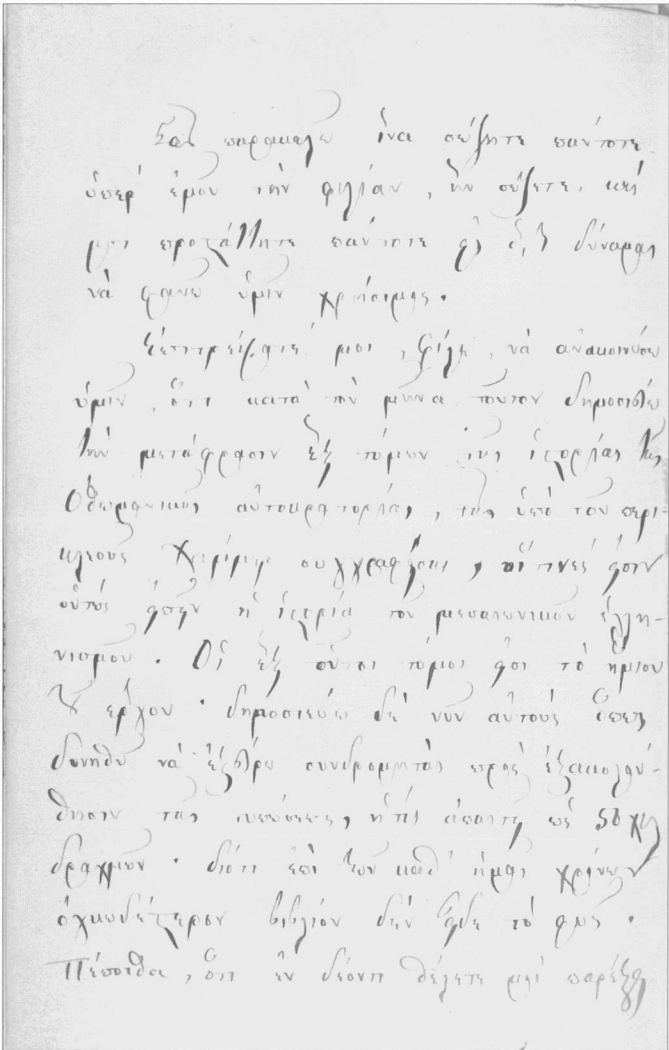 Σας παρακαλώ ίνα σώζητε πάντοτε
υπέρ εμού την φιλίαν, ην σώζετε, και
με προστάττητε πάντοτε εί δυνάμαι
να φανώ υμίν χρήσιμος.
Επιτρέψατέ μοι, φίλε, να ανακοινώσω
υμίν, ότι κατά τον μήνα τούτον δημοσιεύω
την μετάφρασιν έξ τόμων της ιστορίας της
Οθωμανικής αυτοκρατορίας, της υπό του περι-
κλεούς Χάμμερ συγγραφείσης, οίτινες εισίν
ούτως ειπείν η ιστορία του μεσαιωνικού ελλη-
νισμού. Οι έξ ούτοι τόμοι εισί το ήμισυ
του έργου· δημοσιεύω δε νυν αυτούς όπως
δυνηθώ να εύρω συνδρομητάς προς εξακολού-
θησιν της εκδόσεως, ήτις απαιτεί ως 50 χιλ
δραχμών· διότι επί των καθ' ημάς χρόνων
ογκωδέστερον βιβλίον δεν είδε το φως.
Πέποιθα, ότι εν δέοντι θέλετε μοι παρέξει